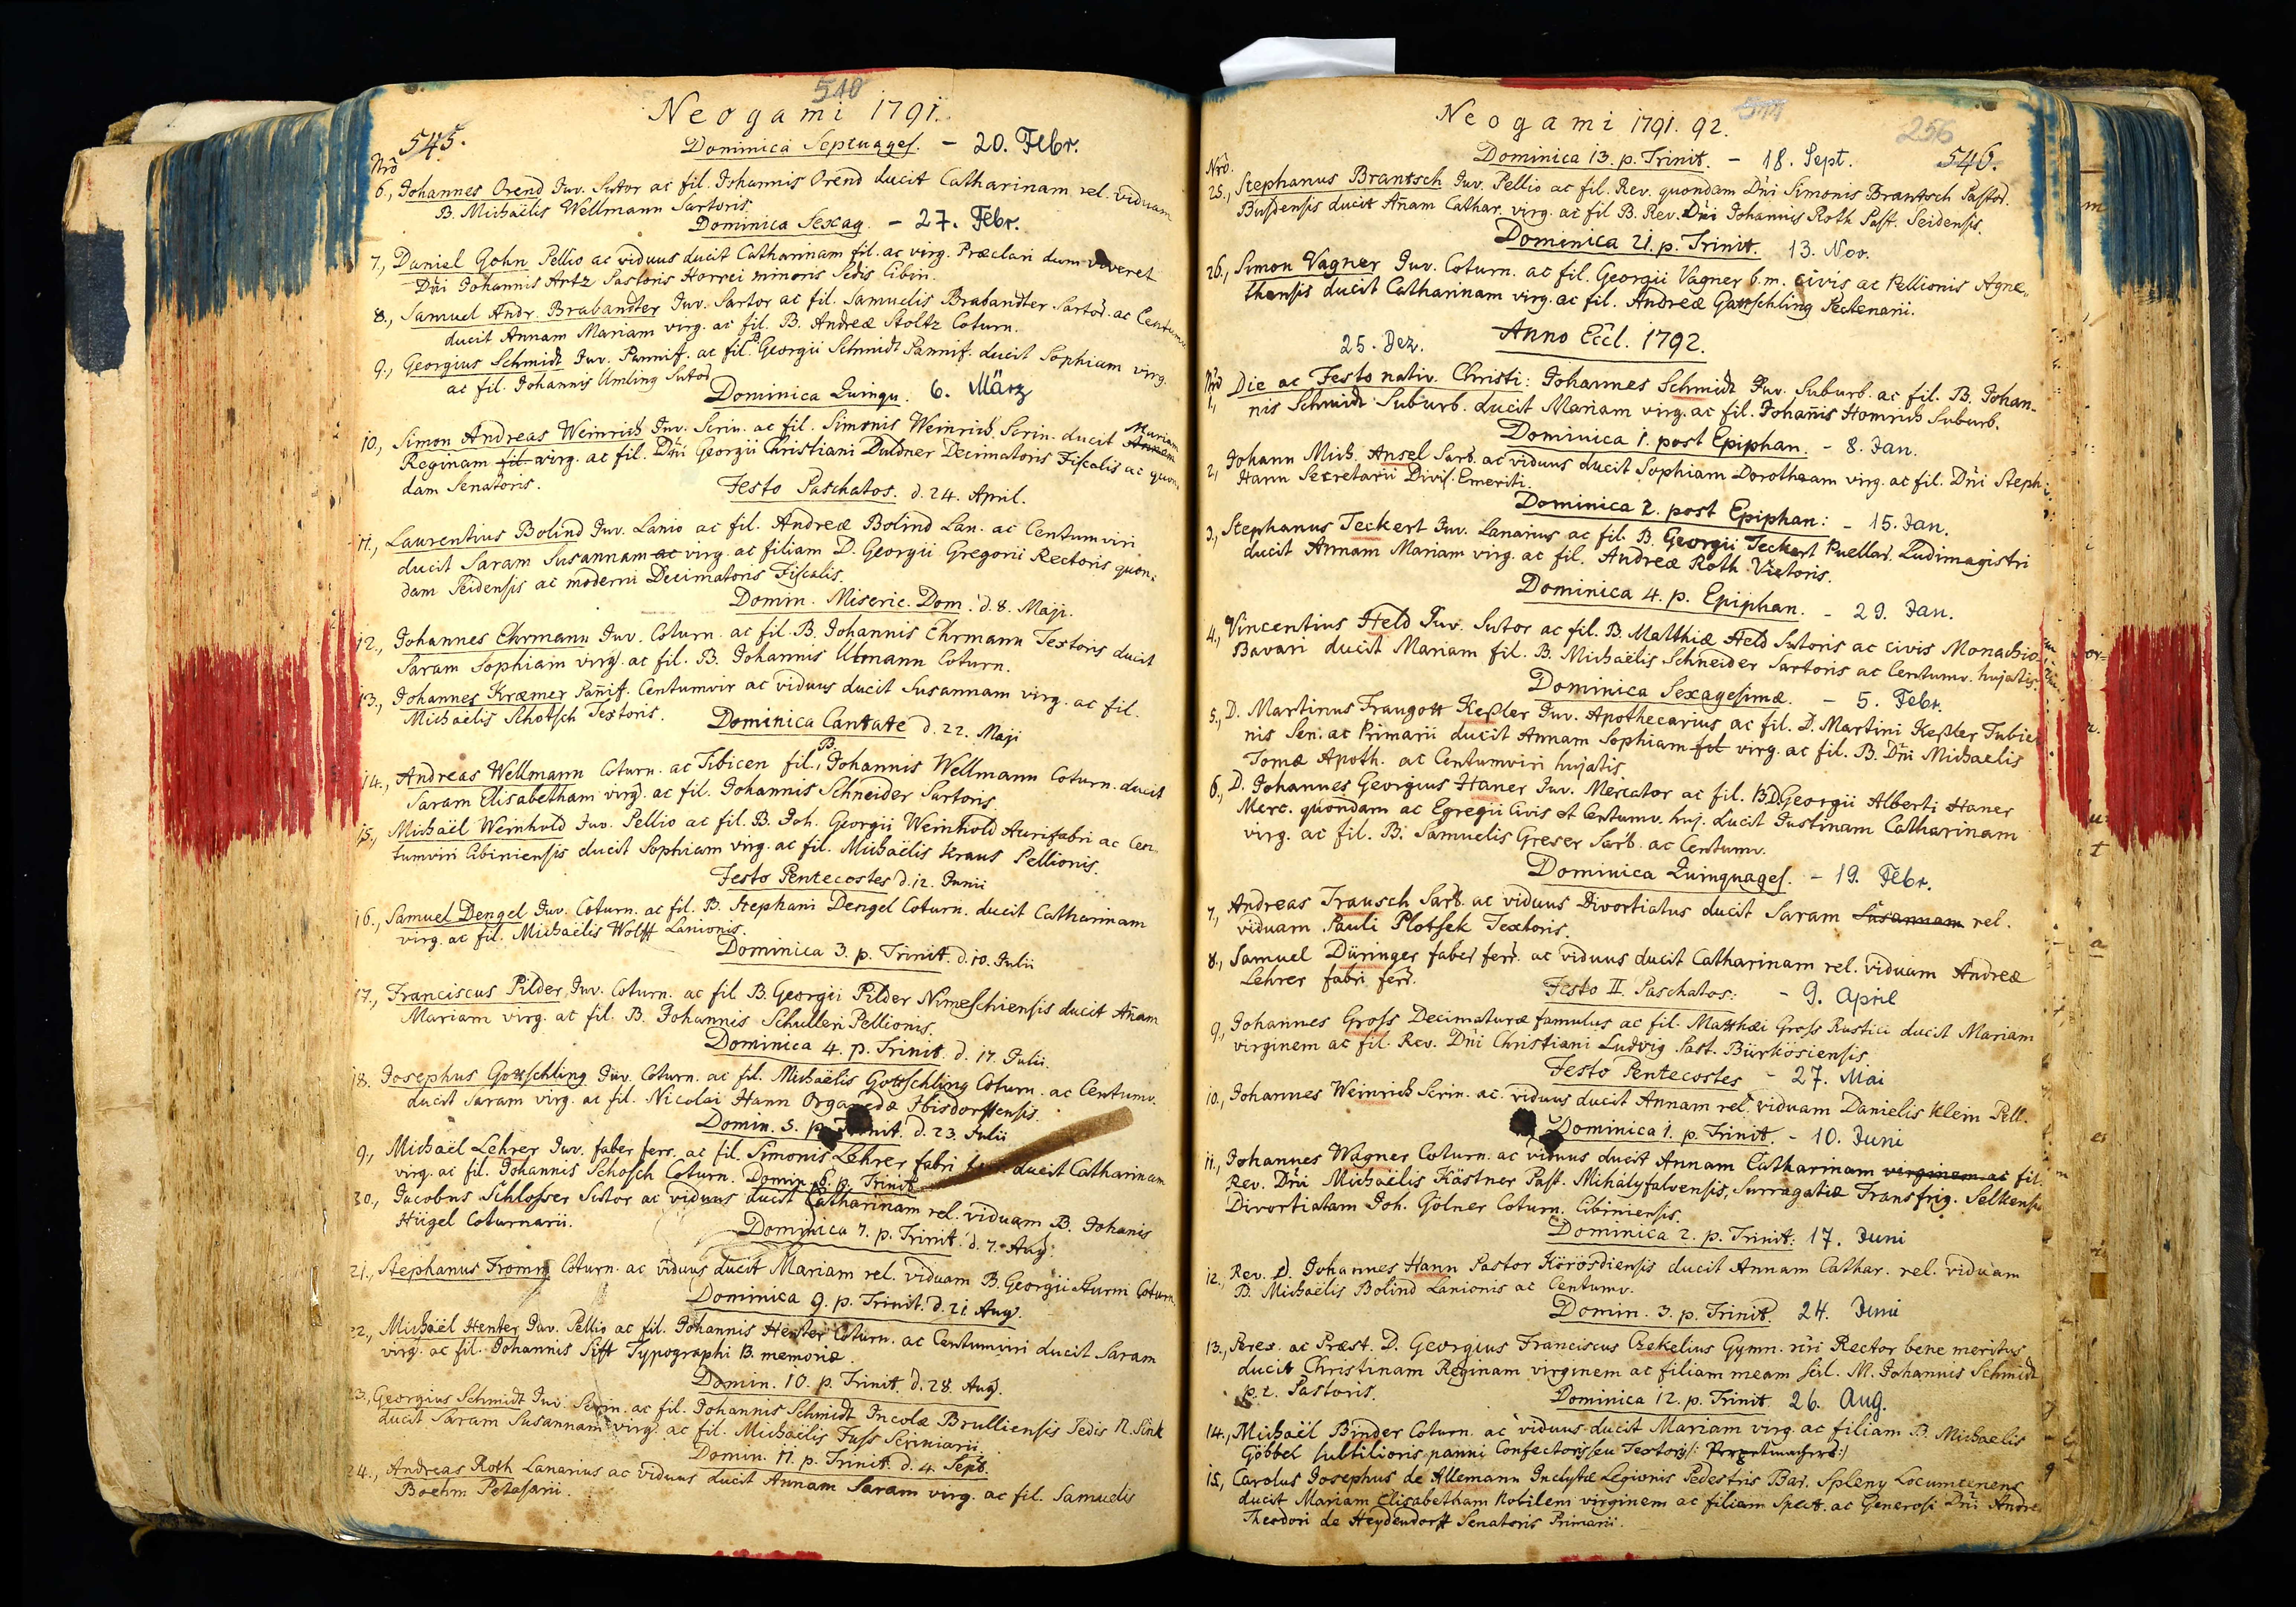 510
Neogami 1791.
545.
Dominica Septuages. - 20. Febr.
Nrô
6., Johannes Orend Juv. Sutor ac fil. Johannis Orend ducit Catharinam rel. viduam
B. Michaëlis Wellmann Sartoris.
Dominica Sexag. - 27. Febr.
7., Daniel Gohn Pellio ac viduus ducit Catharinam fil. ac virg. Præclari dum viveret
Dni Johannis Artz Pastoris Horrei minoris Sedis Cibin.
8., Samuel Andr. Brabandter Juv. Sartor ac fil. Samuelis Brabandter Sartor. ac Centumv.
ducit Annam Mariam virg. ac fil. B. Andreæ Stoltz Coturn.
9., Georgius Schmidt Juv. Pannif. ac fil. B. Georgii Schmidt Pannif. ducit Sophiam virg.
ac fil. Johannis Umling Sutor.
Dominica Quinqu. 6. März
10., Simon Andreas Weinrich Juv. Scrin. ac fil. Simonis Weinrich Scrin. ducit Annam Mariam
Reginam fil. virg. ac fil. Dni Georgii Christiani Duldner Decimatoris Fiscalis ac quon-
dam Senatoris.
Festo Paschatos. d. 24. April.
11., Laurentius Bolind Juv. Lanio ac fil. Andreæ Bolind Lan. ac Centumviri
ducit Saram Susannam ac virg. ac filiam D. Georgii Gregorii Rectoris quon-
dam Seidensis ac moderni Decimatoris Fiscalis.
Domin. Miseric. Dom. d. 8. Maji.
12., Johannes Ehrmann Juv. Coturn. ac fil. B. Johannis Ehrmann Textoris ducit
Saram Sophiam virg. ac fil. B. Johannis Utmann Coturn.
13., Johannes Kræmer Pañif. Centumvir ac viduus ducit Susannam virg. ac fil.
Michaëlis Schotsch Textoris.
Dominica Cantate d. 22. Maji
14., Andreas Wellmann Coturn. ac Tibicen fil. B. Johannis Wellmann Coturn. ducit
Saram Elisabetham virg. ac fil. Johannis Schneider Sartoris.
15., Michaël Weinhold Juv. Pellio ac fil. B. Joh. Georgii Weinhold Aurifabri ac Cen-
tumviri Cibiniensis ducit Sophiam virg. ac fil. Michaëlis Kraus Pellionis.
Festo Pentecostes d. 12. Junii
16., Samuel Dengel Juv. Coturn. ac fil. B. Stephani Dengel Coturn. ducit Catharinam
virg. ac fil. Michaëlis Wolff Lanionis.
Dominica 3. p. Trinit. d. 10. Julii
17., Franciscus Pilder Juv. Coturn. ac fil. B. Georgii Pilder Nimeschiensis ducit Añam
Mariam virg. ac fil. B. Johannis Schulleri Pellionis.
Dominica 4. p. Trinit. d. 17. Julii.
18. Josephus Gottschling Juv. Coturn. ac fil. Michaëlis Gottschling Coturn. ac Centumv.
ducit Saram virg. ac fil. Nicolai Hann Organedæ Ibisdorffensis.
Domin. 5. p. Trinit. d. 23. Julii
9., Michaël Lehrer Juv. faber ferr. ac fil. Simonis Lehrer fabri ferr. ducit Catharinam
virg. ac fil. Johannis Schosch Coturn. Domin. 6. p. Trinit.
20., Jacobus Schlosser Sutor ac viduus ducit Catharinam rel. viduam B. Johanis
Hügel Coturnarii.
Dominica 7. p. Trinit. d. 7. Aug.
21., Stephanus Fromm Coturn. ac viduus ducit Mariam rel. viduam B. Georgii Sturm Coturn.
Dominica 9. p. Trinit. d. 21 Aug.
22., Michaël Henter Juv. Pellio ac fil. Johannis Henter Coturn. ac Centumviri ducit Saram
virg. ac fil. Johannis Sifft Typographi B. memoriæ.
Domin. 10. p. Trinit. d. 28. Aug.
23., Georgius Schmidt Juv. Scrin. ac fil. Johannis Schmidt Incolæ Brulliensis Sedis N. Sink
ducit Saram Susannam virg. ac fil. Michaëlis Fuss Scriniarii.
Domin. 11. p. Trinit. d. 4. Sept.
24., Andreas Roth Lanarius ac viduus ducit Annam Saram virg. ac fil. Samuelis
Boehm Petasarii.
511
Neogami 1791. 92.
256
546.
Dominica 13. p. Trinit. - 18. Sept.
Nrô.
25., Stephanus Brantsch Juv. Pellio ac fil. Rev. quondam Dni Simonis Brantsch Pastor.
Busdensis ducit Añam Cathar. virg. ac fil B. Rev. Dni Johannis Roth Past. Seidensis.
Dominica 21. p. Trinit. 13. Nov.
26., Simon Vagner Juv. Coturn. ac fil. Georgii Vagner b. m. civis ac Pellionis Agne-
thensis ducit Catharinam virg. ac fil. Andreæ Gottschling Pectenarii.
25. Dez. Anno Eccl. 1792.
Nrô Die ac Festo nativ. Christi: Johannes Schmidt Juv. Suburb. ac fil. B. Johan-
1., nis Schmidt Suburb. ducit Mariam virg. ac fil. Johañis Homrich Suburb.
Dominica 1. post Epiphan. - 8. Jan.
2., Johann Mich. Ansel Sart. ac viduus ducit Sophiam Dorotheam virg. ac fil. Dni Steph.
Hann Secretarii Divis. Emeriti.
Dominica 2. post Epiphan: - 15. Jan.
3., Stephanus Teckert Juv. Lanarius ac fil. B. Georgii Teckert Puellar. Ludimagistri
ducit Annam Mariam virg. ac fil. Andreæ Roth Vietoris.
Dominica 4. p. Epiphan. - 29. Jan.
4., Vincentius Held Juv. Sutor ac fil. B. Matthiæ Held Sutoris ac civis Monachio-
Bavari ducit Mariam fil. B. Michaëlis Schneider Sartoris ac Centumv. hujatis.
Dominica Sexagesimæ. - 5. Febr.
5., D. Martinus Traugott Keßler Juv. Apothecarius ac fil. D. Martini Keßler Tubici-
nis Sen. ac Primarii ducit Annam Sophiam fil virg. ac fil. B. Dni Michaelis
Tomæ Apoth. ac Centumviri hujatis
6., D. Johannes Georgius Haner Juv. Mercator ac fil. B. D. Georgii Alberti Haner
Merc. quondam ac Egregii Civis et Centumv. huj. ducit Justinam Catharinam
virg. ac fil. B. Samuelis Greser Sart. ac Centumv.
Dominica Quinquages. - 19. Febr.
7., Andreas Trausch Sart. ac viduus Divortiatus ducit Saram Susannam rel.
viduam Pauli Plotsek Textoris.
8., Samuel Düringer faber ferr. ac viduus ducit Catharinam rel. viduam Andreæ
Lehrer fabri ferr.
Festo II. Paschatos: - 9. April
9., Johannes Gross Decimaturæ famulus ac fil. Matthæi Gross Rustici ducit Mariam
virginem ac fil. Rev. Dni Christiani Ludvig Past. Bürkösiensis
Festo Pentecostes - 27. Mai
10., Johannes Weinrich Scrin. ac viduus ducit Annam rel. viduam Danielis Klein Pell.
Dominica 1. p. Trinit. - 10. Juni
11., Johannes Wagner Coturn. ac viduus ducit Annam Catharinam virginem ac fil.
Rev. Dni Michaëlis Kästner Past. Mihalyfalvensis, Surrogatiæ Transfrig. Selkensis
Divortiatam Joh. Gölner Coturn. Cibiniensis.
Dominica 2. p. Trinit: 17. Juni
12., Rev. D. Johannes Hann Pastor Körösdiensis ducit Annam Cathar. rel. viduam
B. Michaëlis Bolind Lanionis ac Centumv.
Domin. 3. p. Trinit. 24. Juni
13., Peres. ac Præst. D. Georgius Franciscus Czekelius Gymn. nri Rector bene meritus
ducit Christinam Reginam virginem ac filiam meam scil. M. Johannis Schmidt
p. t. Pastoris.
Dominica 12. p. Trinit. 26. Aug.
14., Michaël Binder Coturn. ac viduus ducit Mariam virg. ac filiam B. Michaelis
Göbbel subtilioris panni Confectoris seu Textoris
15., Carolus Josephus de Allemann Inclytæ Legionis Pedestris Bar. Spleny Locumtenens
ducit Mariam Elisabetham Nobilem virginem ac filiam Spect. ac Generosi Dni Andreæ
Theodori de Heydendorff Senatoris Primarii.